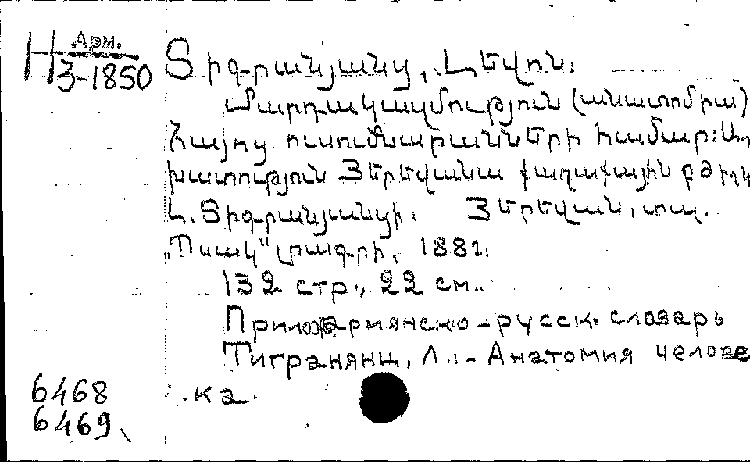 Арм.
Н З-1850
Տիգրանյանց, Լեվոն.
Մարդակազմություն (անատոմիա)
Հայոց ուսումնարանների համար: Աշ
խատություն Յերեվանա քաղաքային բժիշկ
Լ. Տիգրանյանցի. Յերեվան, տպ.
„Պսակ“ լրագրի, 1881.
132 стр., 22 см.
Прилож армянско-русск. словарь
Тигранянц, Л. - Анатомия челове
ка
6468
6469